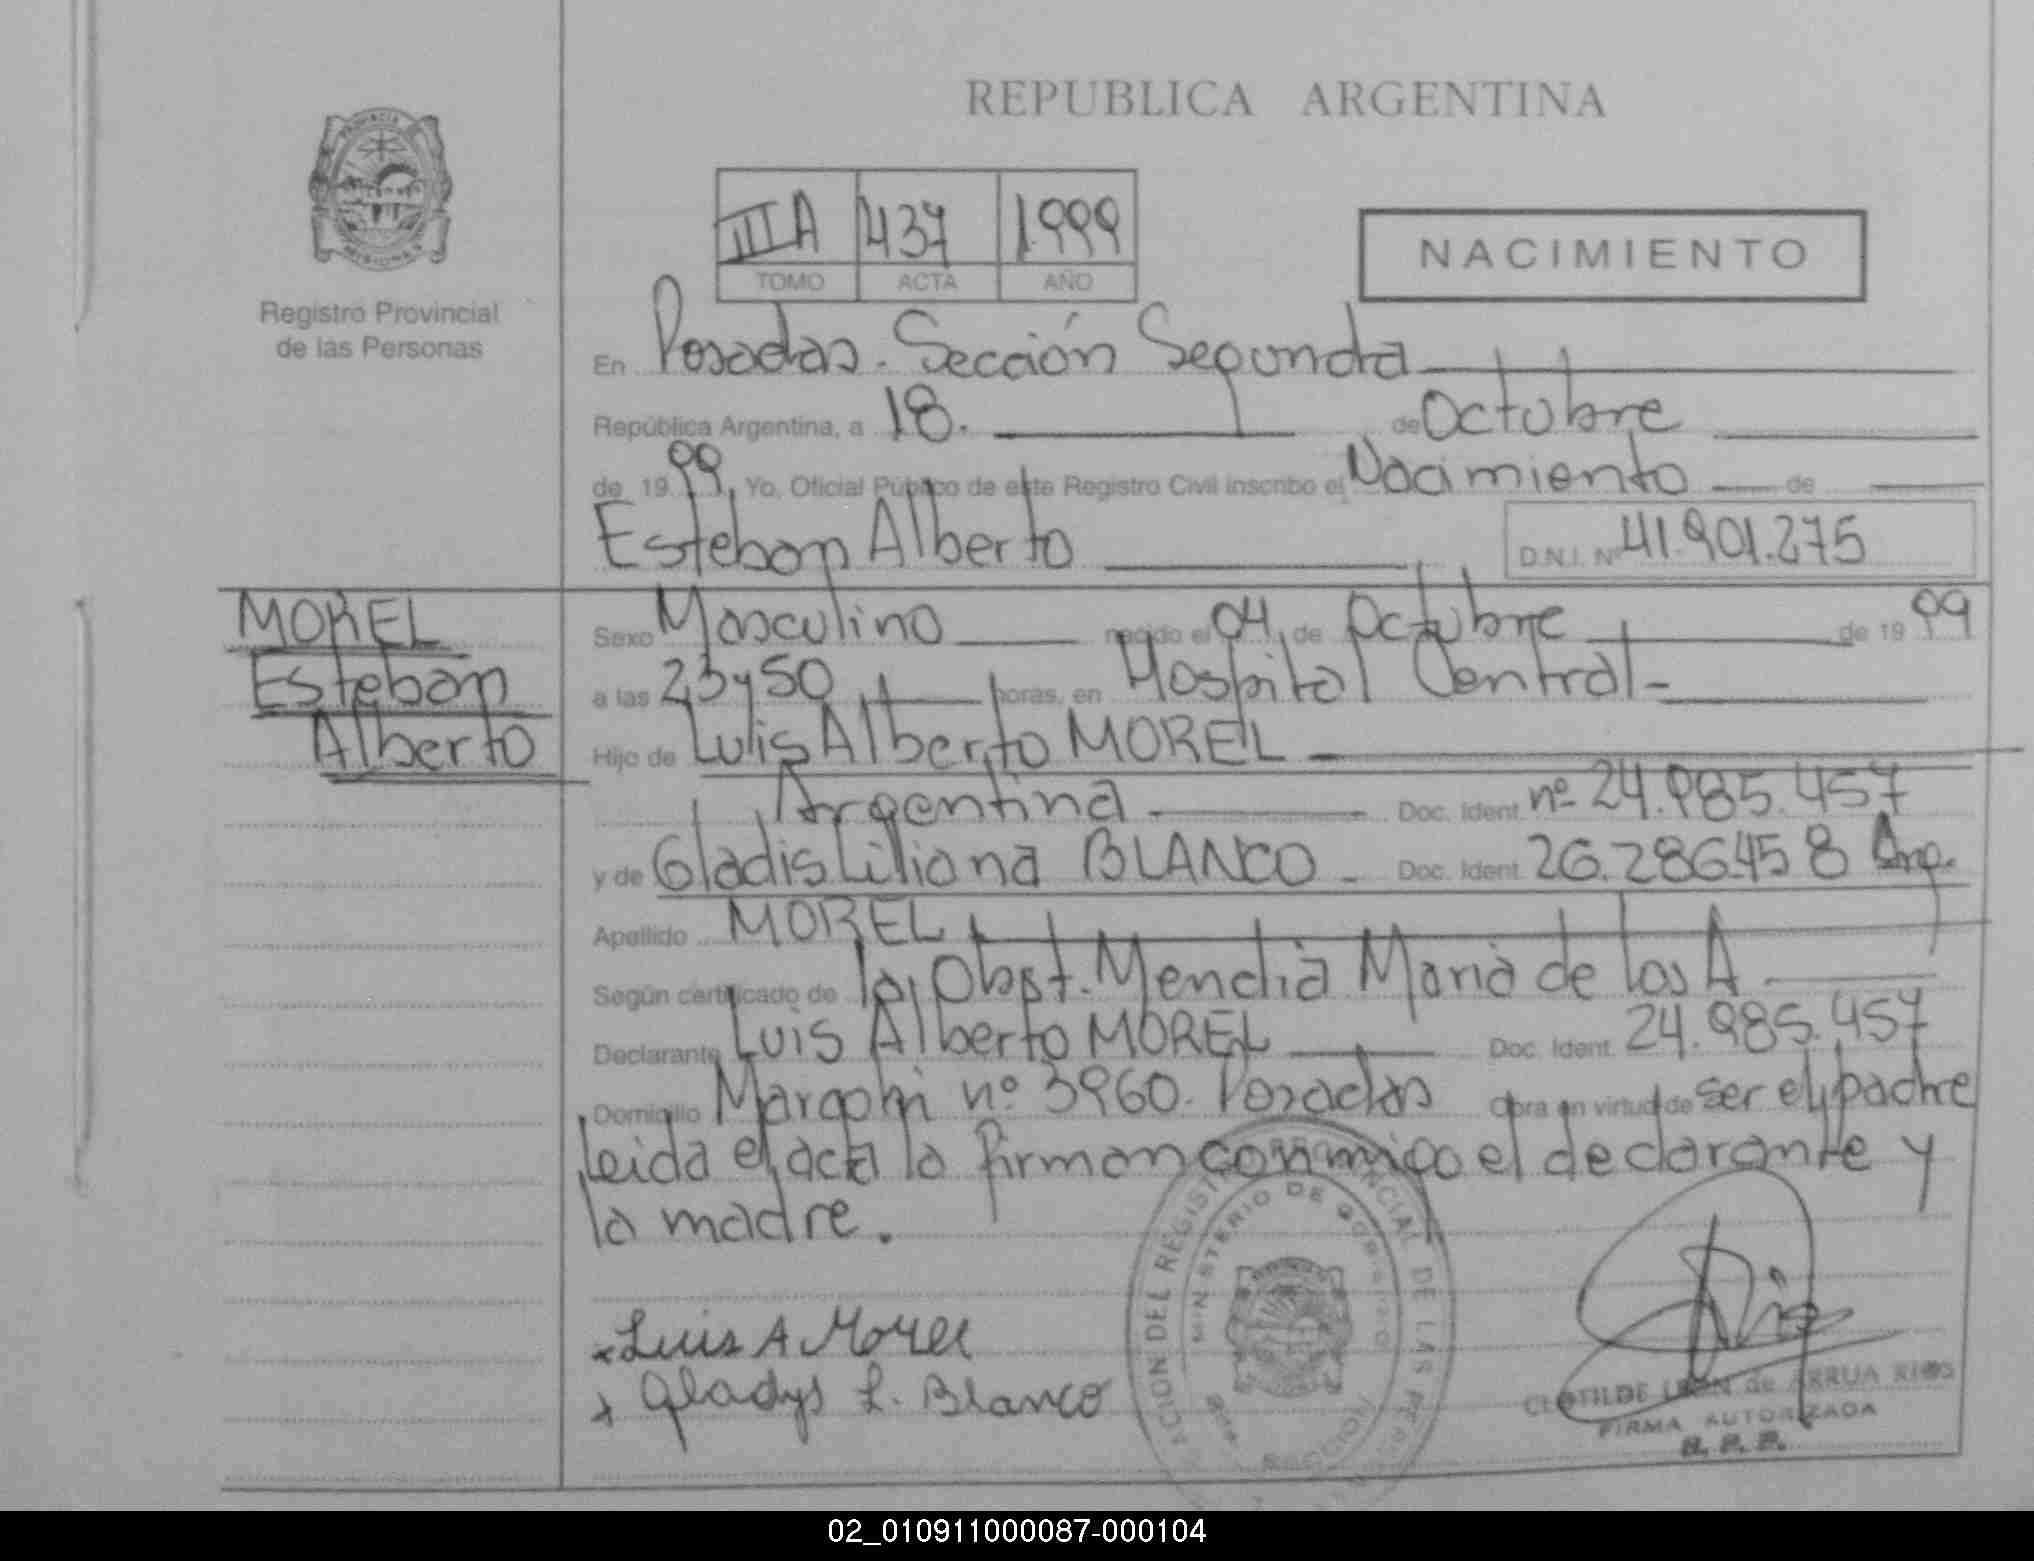 REPUBLICA ARGENTINA
PROVINCIA
MISIONES
Registro Provincial
de las Personas
IIIA 437 1999
TOMO ACTA AÑO
NACIMIENTO
En Posadas. Sección Segunda
República Argentina, a 18. de Octubre
de 1999, Yo, Oficial Público de este Registro Civil inscribo el Nacimiento de
Esteban Alberto D.N.I. Nº 41.901.275
MOREL
Esteban
Alberto
Sexo Masculino nacido el 04 de Octubre de 1999
a las 23 y 50 horas, en Hospital Central
Hijo de Luis Alberto MOREL
Argentina Doc. Ident. nº 24.985.457
y de Gladis Liliana BLANCO Doc. Ident. 26.286.458 Arg.
Apellido MOREL
Según certificado de la Obst. Mendia Maria de los A
Declarante Luis Alberto MOREL Doc. Ident. 24.985.457
Domicilio nº 3960. Posadas Obra en virtud de ser el padre
leida el acta la firman conmigo el declarante y
la madre.
Luis A Morel
Gladys L. Blanco
MINISTERIO DE GOBIERNO
CLOTILDE LEON de ARRUA RIOS
FIRMA AUTORIZADA
R. P. P.
02_010911000087-000104